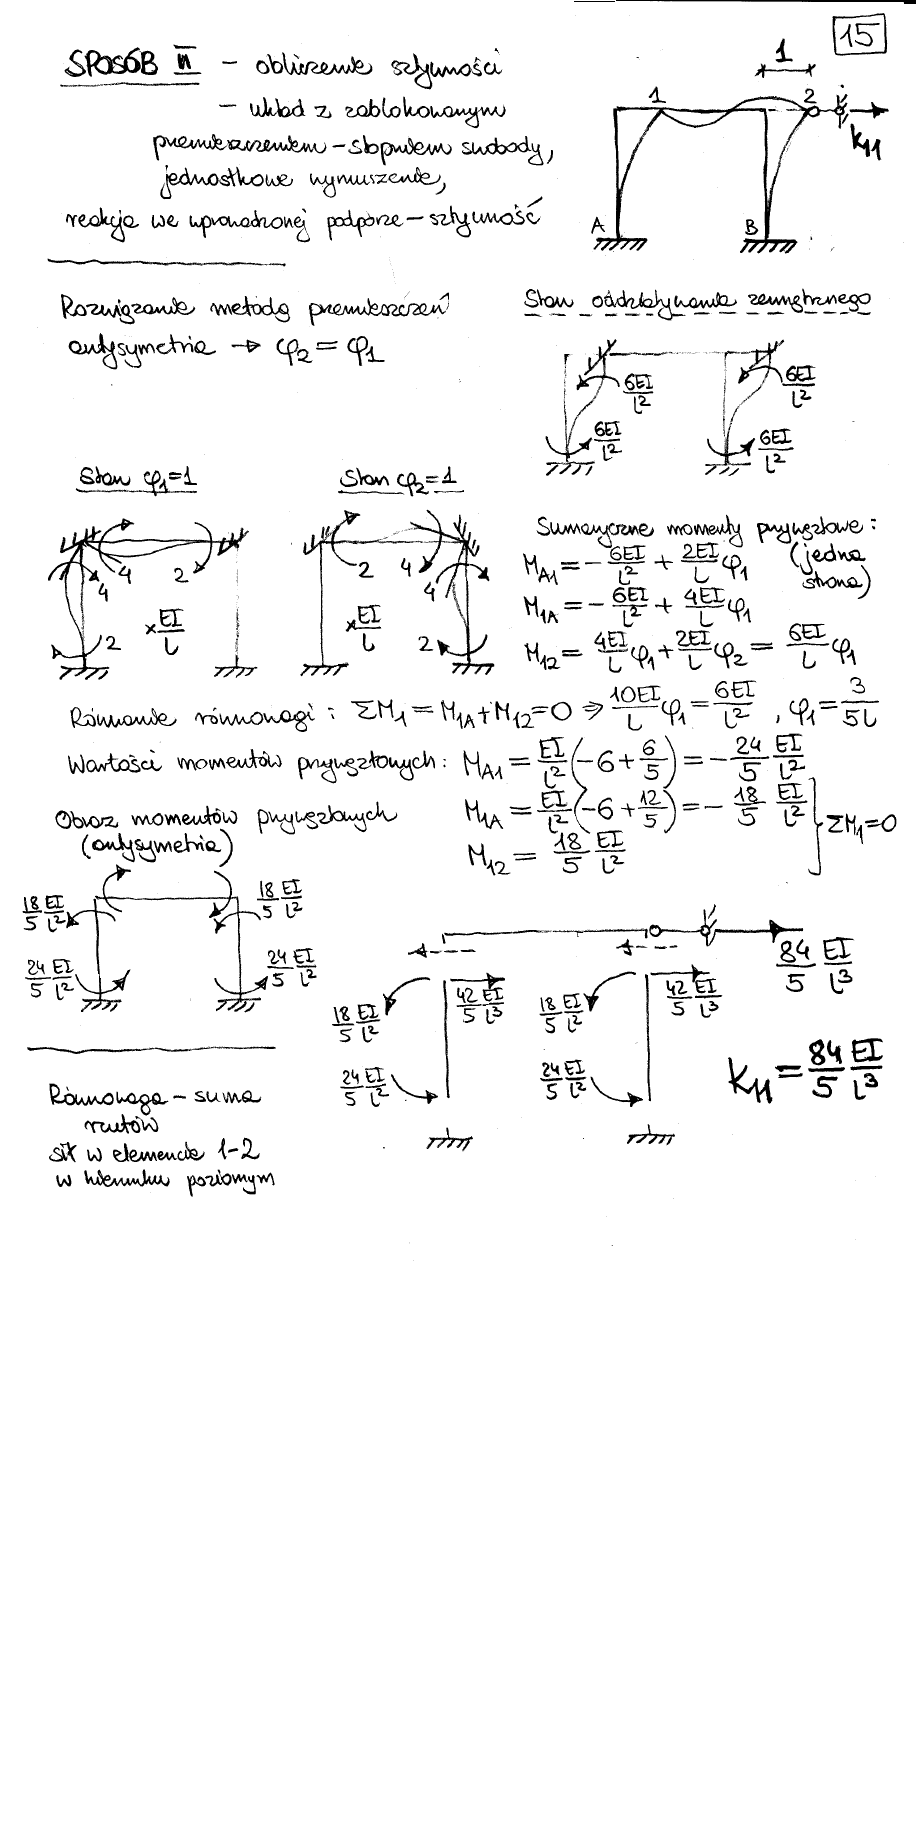 15
SPOSÓB II – obliczenie sztywności
– układ z zablokowanym
przemieszczeniem – stopniem swobody,
jednostkowe wymuszenie,
reakcja we wprowadzonej podporze – sztywność
1
1 2
k11
A B
Rozwiązanie metodą przemieszczeń
antysymetria → φ2 = φ1
Stan oddziaływania zewnętrznego
6EI/l² 6EI/l²
6EI/l² 6EI/l²
Stan φ1=1 Stan φ2=1
4 4 2 2 ×EI/l
2 4 4 2 ×EI/l
Sumaryczne momenty przywęzłowe:
(jedna strona)
MA1 = -6EI/l² + 2EI/l φ1
M1A = -6EI/l² + 4EI/l φ1
M12 = 4EI/l φ1 + 2EI/l φ2 = 6EI/l φ1
Równanie równowagi: ΣM1 = M1A + M12 = 0 ⇒ 10EI/l φ1 = 6EI/l², φ1 = 3/5l
Wartości momentów przywęzłowych: MA1 = EI/l² (-6 + 6/5) = -24/5 EI/l²
M1A = EI/l² (-6 + 12/5) = -18/5 EI/l²
M12 = 18/5 EI/l²
ΣM1=0
Obraz momentów przywęzłowych
(antysymetria)
18/5 EI/l² 18/5 EI/l²
24/5 EI/l² 24/5 EI/l²
84/5 EI/l³
42/5 EI/l³ 42/5 EI/l³
18/5 EI/l² 18/5 EI/l²
24/5 EI/l² 24/5 EI/l²
k11 = 84/5 EI/l³
Równowaga – suma
rzutów
sił w elemencie 1-2
w kierunku poziomym